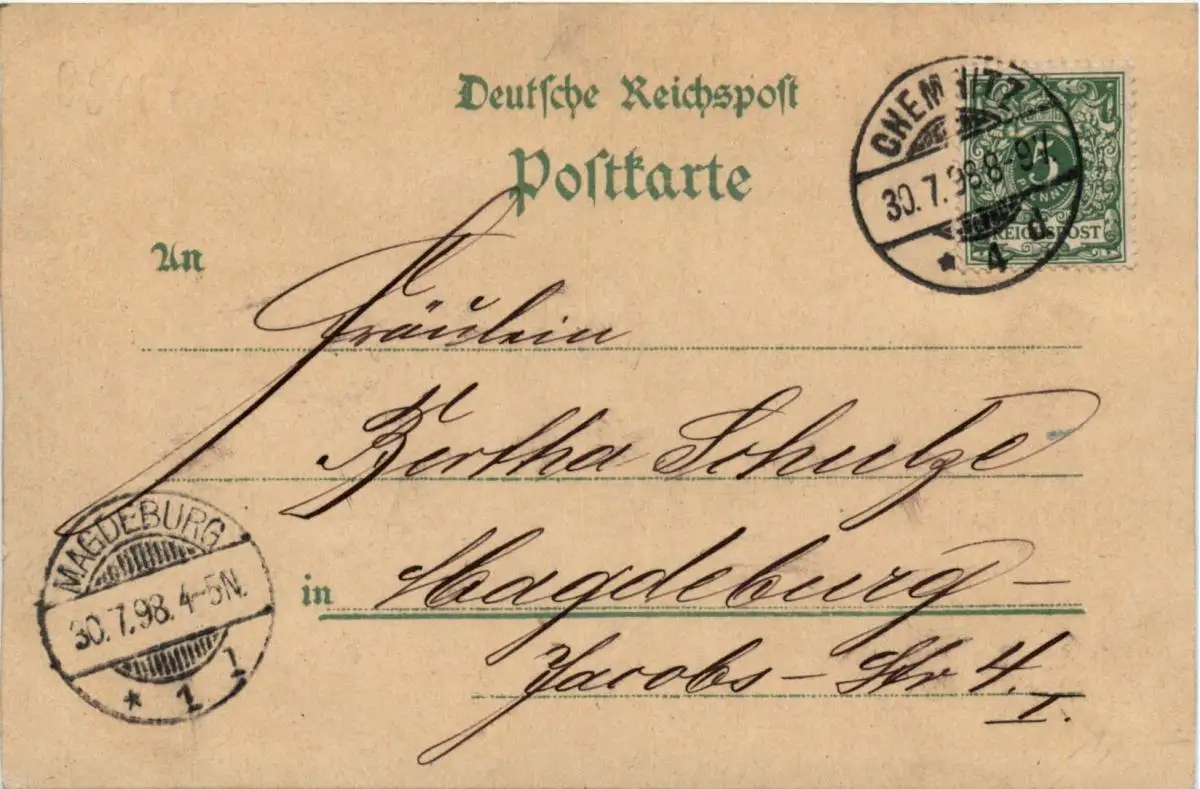 Deutsche Reichspost
Postkarte
CHEMNITZ
30.7.98 8-9V.
* 4 d
5
PFENNIG
REICHSPOST
An
Fräulein
Bertha Schulze
in Magdeburg-
Jacobs-Str 4.
I.
MAGDEBURG
30.7.98. 4-5N.
* 1 1